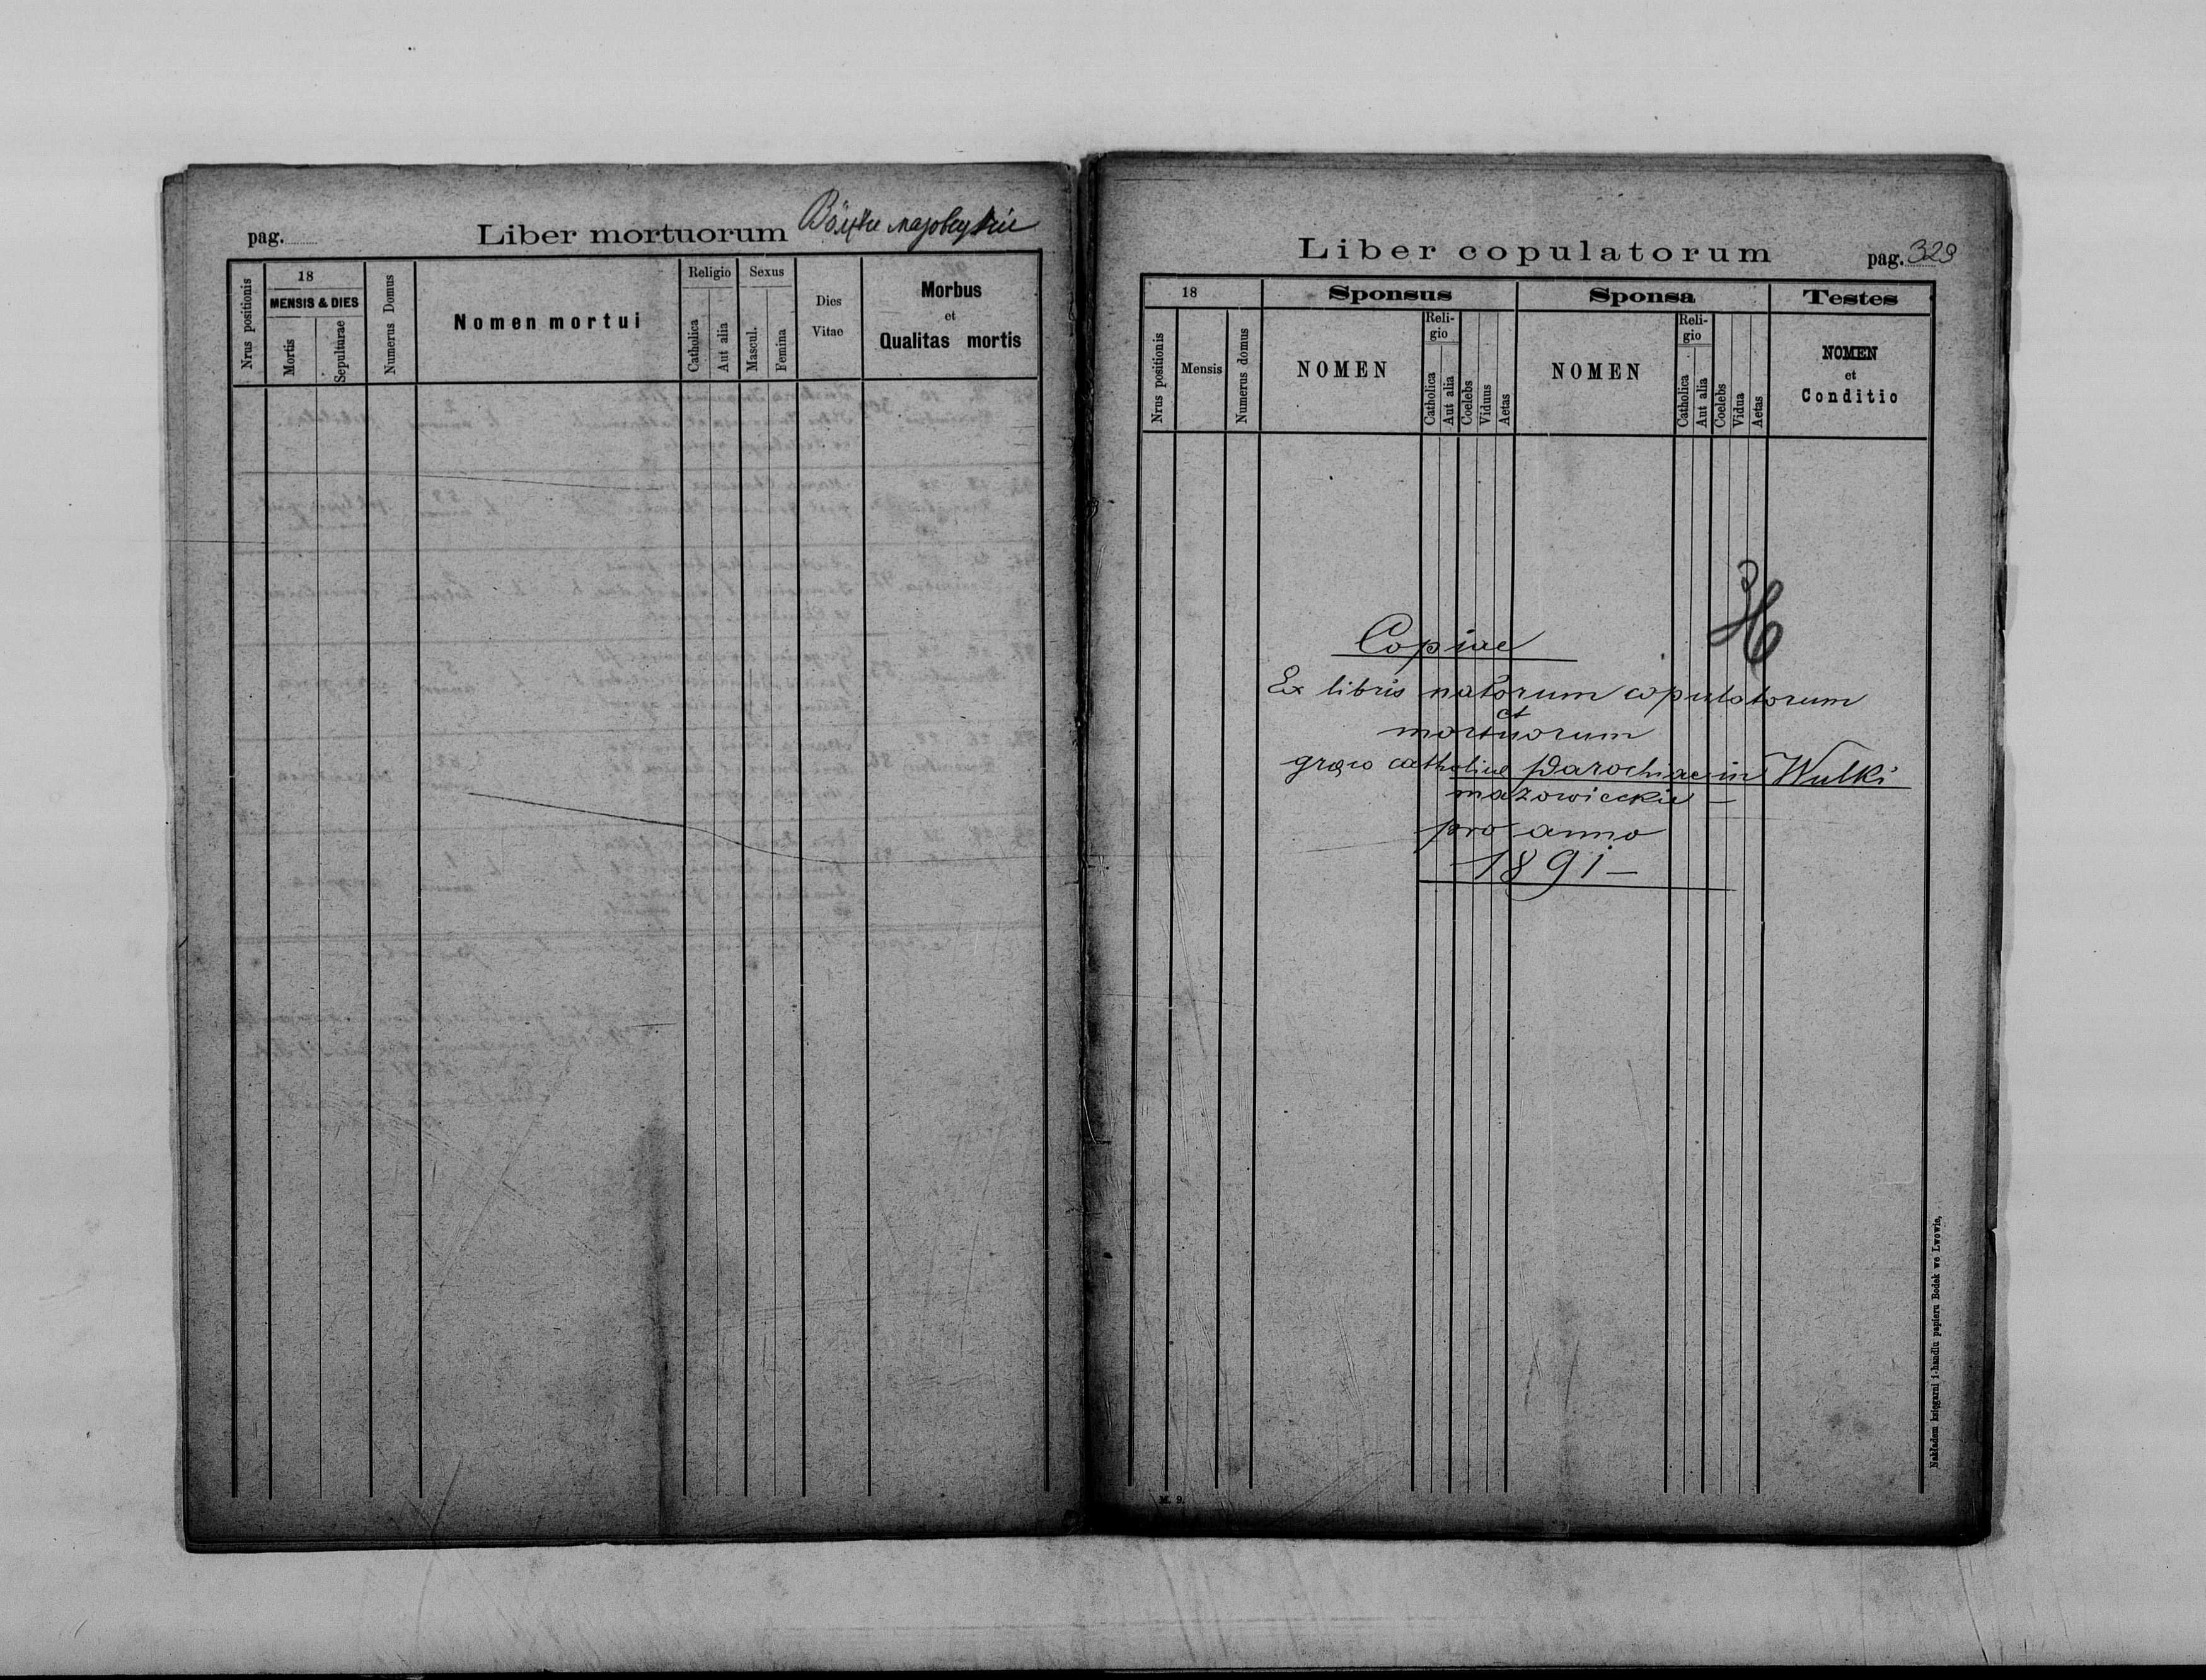 pag.
Liber mortuorum
Nrus positionis
18
MENSIS & DIES
Mortis
Sepulturae
Numerus Domus
Nomen mortui
Religio
Catholica
Aut alia
Sexus
Mascul.
Femina
Dies
Vitae
Morbus
et
Qualitas mortis
Liber copulatorum
pag. 329
18
Nrus positionis
Mensis
Numerus domus
Sponsus
NOMEN
Reli-
gio
Catholica
Aut alia
Coelebs
Viduus
Aetas
Sponsa
NOMEN
Reli-
gio
Catholica
Aut alia
Coelebs
Vidua
Aetas
Testes
NOMEN
et
Conditio
Copiae
Ex libris natorum copulatorum
et
mortuorum
graeco catholicae Parochiae in Wulki
mazowieckie —
pro anno
1891 —
M. 9.
Nakładem księgarni i handlu papieru Bodek we Lwowie,